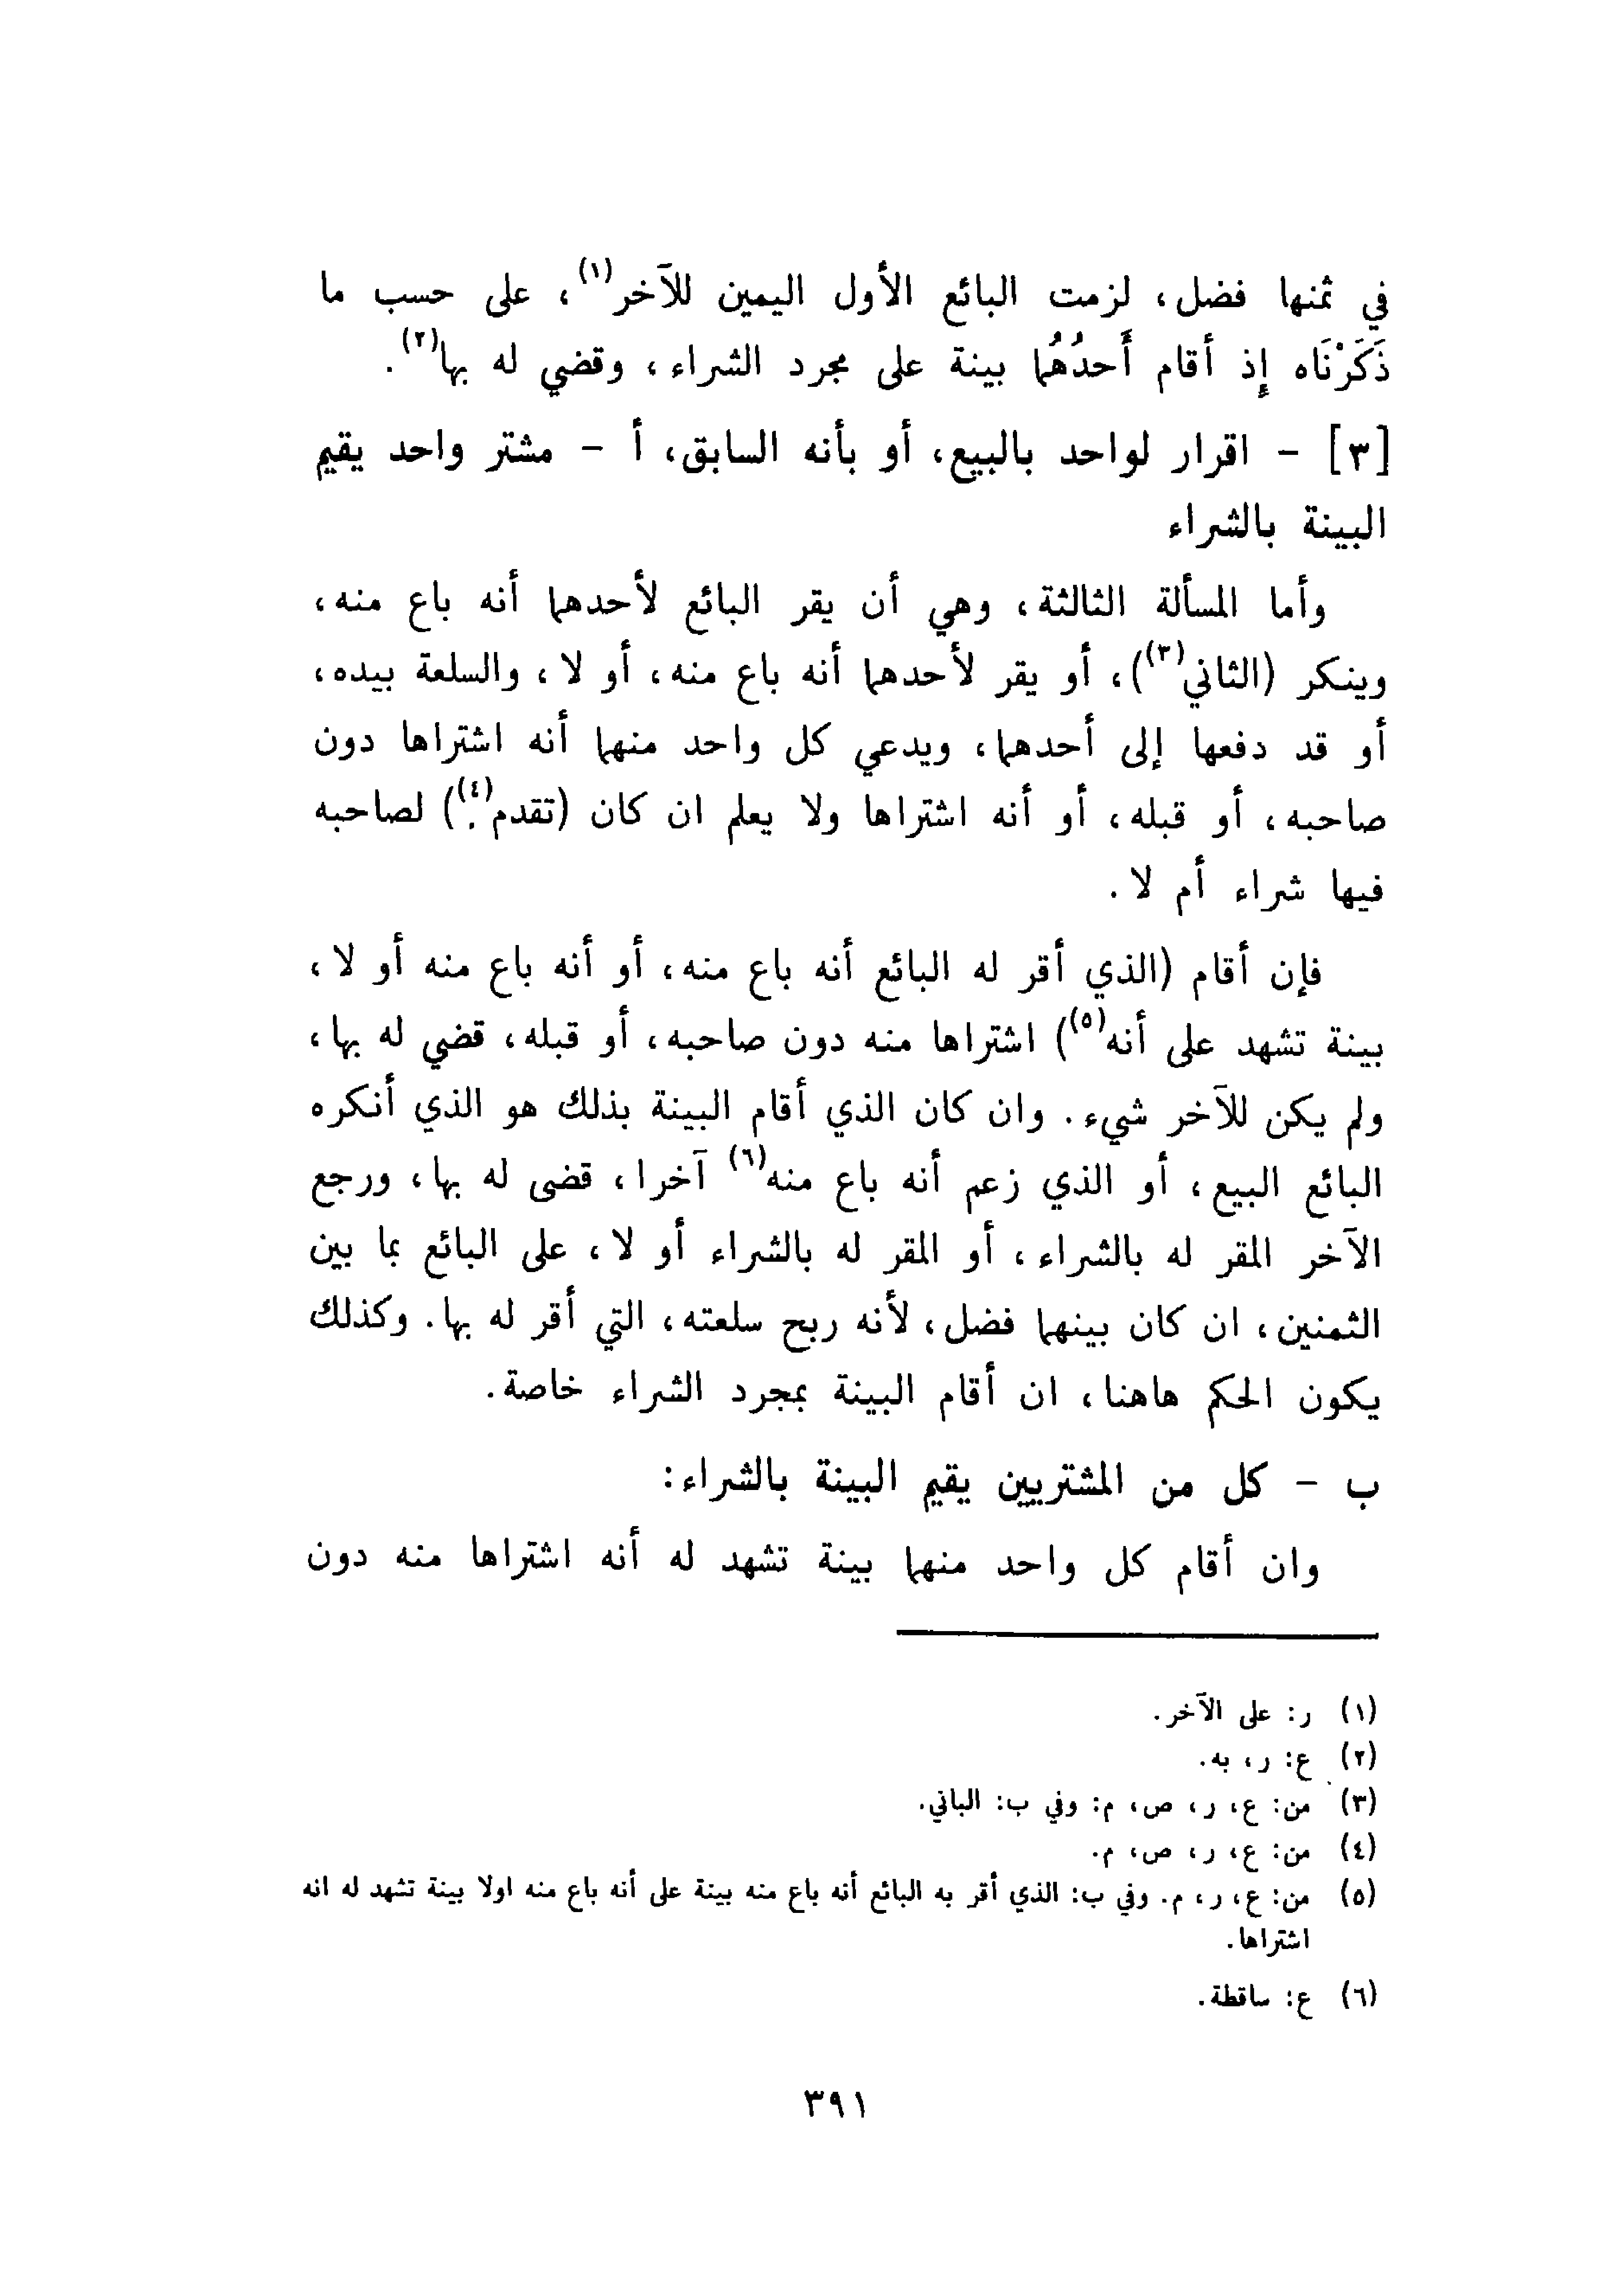 في ثمنها فضل، لزمت البائع الأول اليمين للآخر(١)، على حسب ما
ذَكَرْنَاه إذ أقام أَحدُهُما بينة على مجرد الشراء، وقضي له بها(٢).
[٣] - اقرار لواحد بالبيع، أو بأنه السابق، أ - مشتر واحد يقيم
البينة بالشراء
وأما المسألة الثالثة، وهي أن يقر البائع لأحدهما أنه باع منه،
وينكر (الثاني(٣))، أو يقر لأحدهما أنه باع منه، أو لا، والسلعة بيده،
أو قد دفعها إلى أحدهما، ويدعي كل واحد منهما أنه اشتراها دون
صاحبه، أو قبله، أو أنه اشتراها ولا يعلم ان كان (تقدم(٤)) لصاحبه
فيها شراء أم لا.
فإن أقام (الذي أقر له البائع أنه باع منه، أو أنه باع منه أو لا،
بينة تشهد على أنه(٥)) اشتراها منه دون صاحبه، أو قبله، قضي له بها،
ولم يكن للآخر شيء. وان كان الذي أقام البينة بذلك هو الذي أنكره
البائع البيع، أو الذي زعم أنه باع منه(٦) آخرا، قضى له بها، ورجع
الآخر المقر له بالشراء، أو المقر له بالشراء أو لا، على البائع بما بين
الثمنين، ان كان بينهما فضل، لأنه ربح سلعته، التي أقر له بها. وكذلك
يكون الحكم هاهنا، ان أقام البينة بمجرد الشراء خاصة.
ب - كل من المشتريين يقيم البينة بالشراء:
وان أقام كل واحد منهما بينة تشهد له أنه اشتراها منه دون
(١) ر: على الآخر.
(٢) ع: ر، به.
(٣) من: ع، ر، ص، م: وفي ب: الباني.
(٤) من: ع، ر، ص، م.
(٥) من: ع، ر، م. وفي ب: الذي أقر به البائع أنه باع منه بينة على أنه باع منه اولا بينة تشهد له انه
اشتراها.
(٦) ع: ساقطة.
٣٩١